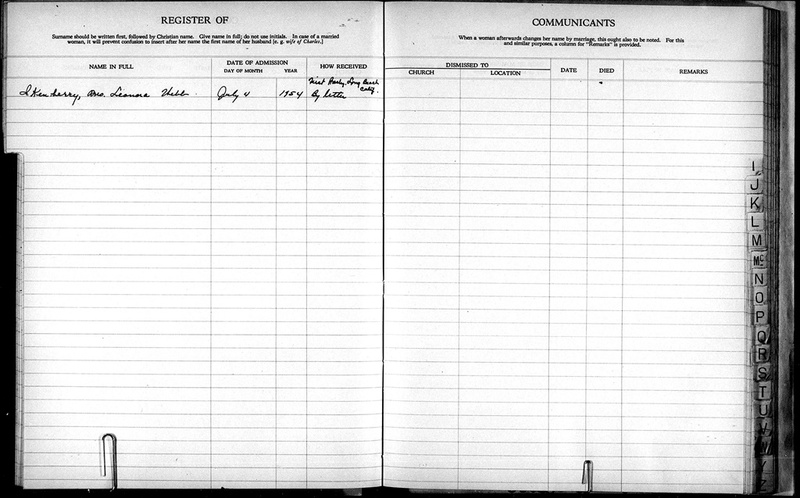 REGISTER OF
Surname should be written first, followed by Christian name. Give name in full; do not use initials. In case of a married
woman, it will prevent confusion to insert after her name the first name of her husband [e. g. wife of Charles.]
NAME IN FULL
DATE OF ADMISSION
DAY OF MONTH
YEAR
HOW RECEIVED
First Long Beach
Calif.
Ikenberry, Mrs. Leonora Webb
July 4
1954
By letter
COMMUNICANTS
When a woman afterwards changes her name by marriage, this ought also to be noted. For this
and similar purposes, a column for "Remarks" is provided.
DISMISSED TO
CHURCH
LOCATION
DATE
DIED
REMARKS
I
J
K
L
M
Mc
N
O
P
Q
R
S
T
U
V
W
Y
Z